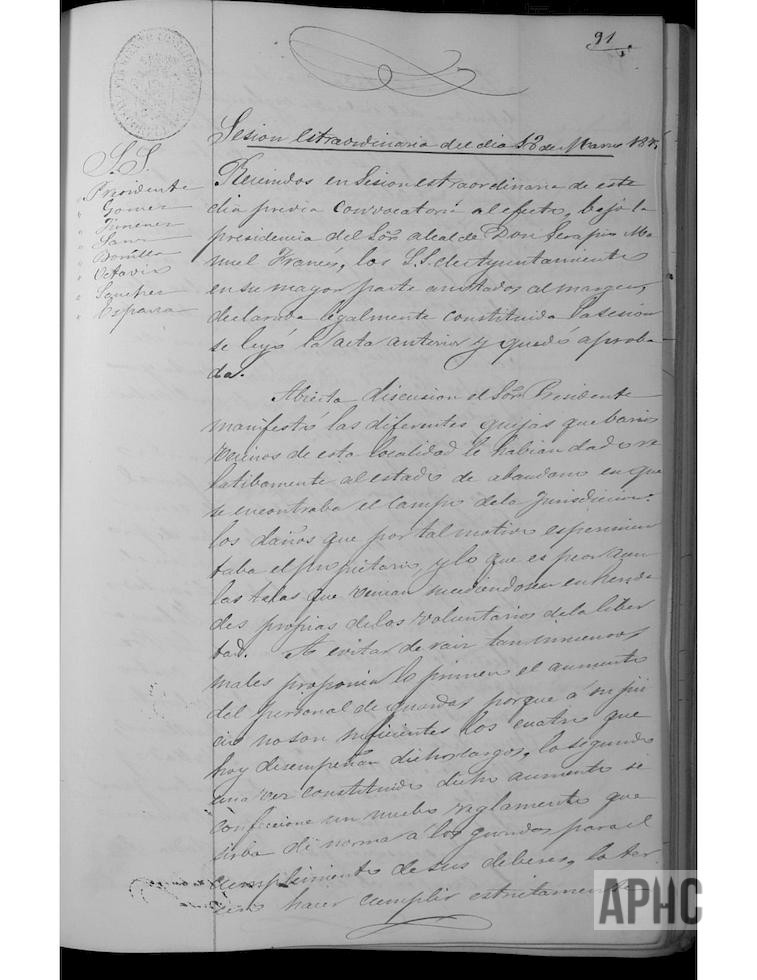 91
Sesion estraordinaria del dia 12 de Marzo 187
S.S.
Presidente
Gomez
Jimenez
Sanz
Bonillo
Octavio
Sanchez
España
Reunidos en Sesion estraordinaria de este
dia previa convocatoria al efecto, bajo la
presidencia del Sor. alcalde Don Serapio Ma
nuel Frances, los S.S. de Ayuntamiento
en su mayor parte anotados al margen,
declarada legalmente constituida la sesion
se leyó la acta anterior y quedó aproba-
da.
Abierta discusion el Sor. Presidente
manifestó las diferentes quejas que barios
vecinos de esta localidad le habian dado re
latibamente al estado de abandono en que
se encontraba el campo de la jurisdicion:
los daños que por tal motivo esperimen
taba el propietario, y lo que es peor aun
las talas que venian sucediendose en hereda
des propias de los voluntarios de la liber
tad. A evitar de raiz tan inmensos
males proponia lo primero el aumento
del personal de guardas porque á su jui
cio no son suficientes los cuatro que
hoy desempeñan dichos cargos, lo segundo
una vez constituido dicho aumento se
confecione un nuebo reglamento que
sirba de norma á los guardas para el
cumplimiento de sus deberes, lo ter-
cero hacer cumplir estrictamente
APHC